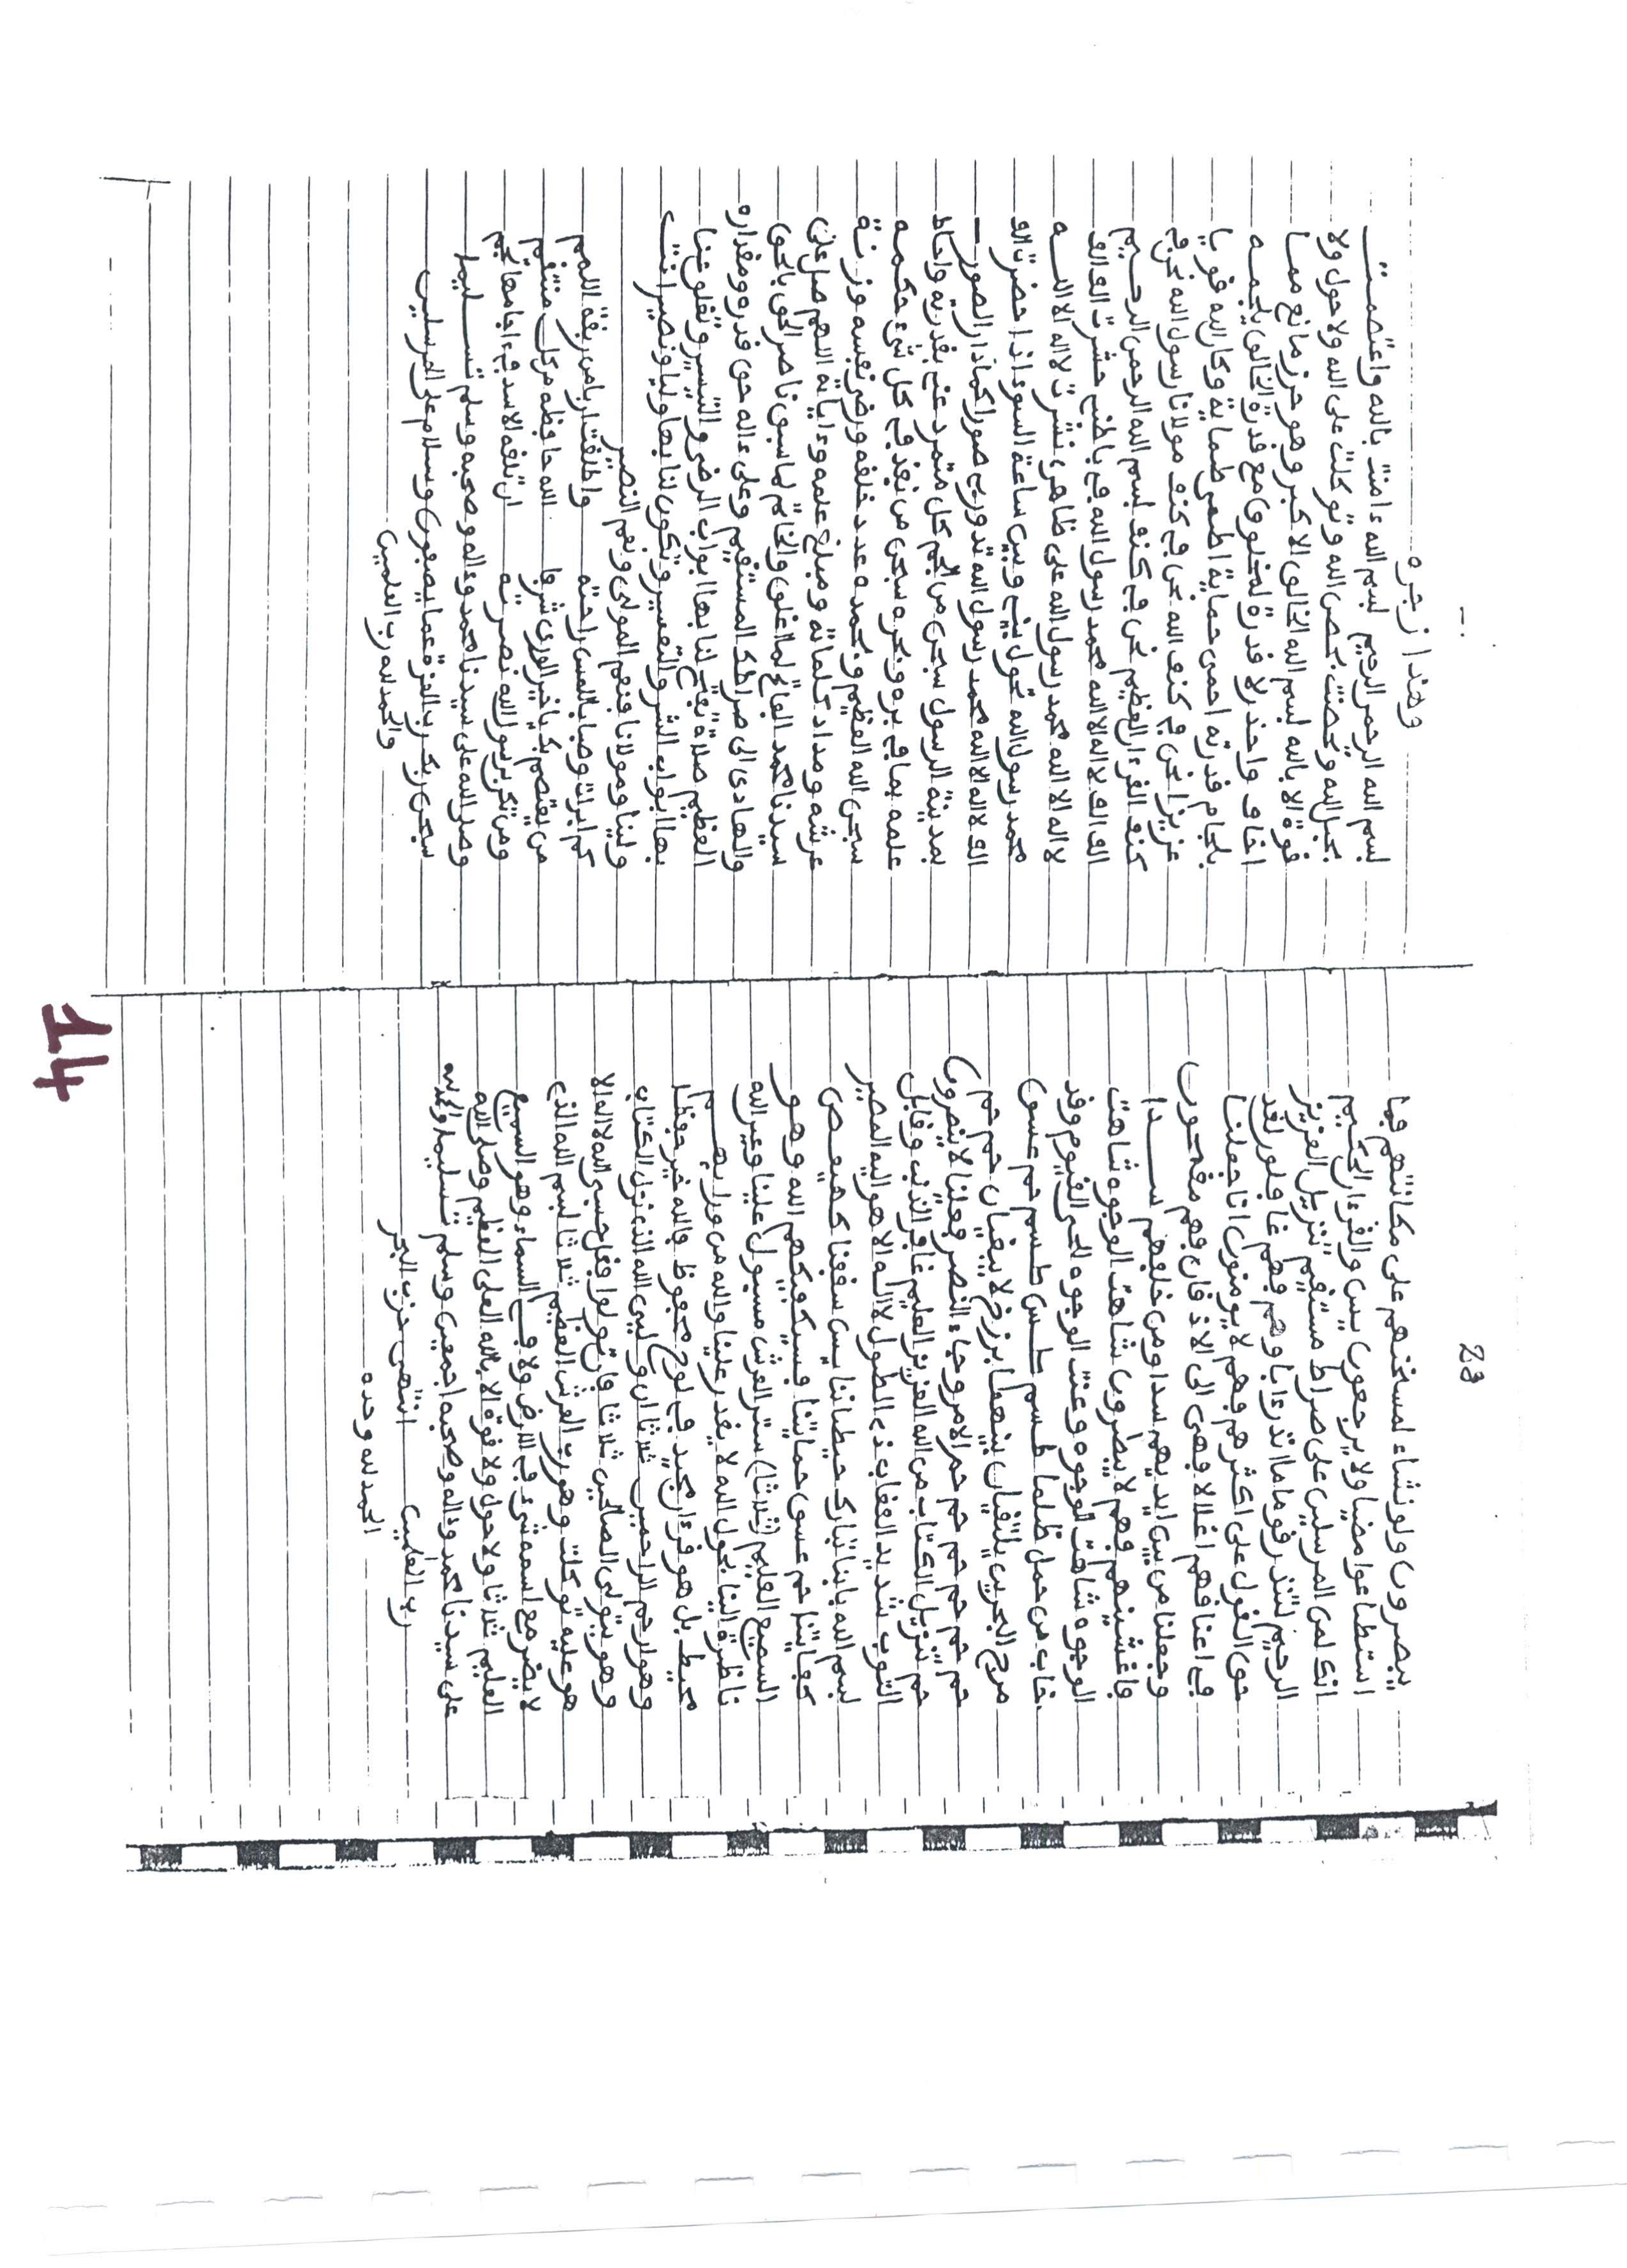 28
يبصرون ولو نشاء لمسخنهم على مكانتهم فما
استطاعوا مضيا ولا يرجعون يس والقرءان الحكيم
انك لمن المرسلين على صراط مستقيم تنزيل العزيز
الرحيم لتنذر قوما ما انذر ءاباؤهم فهم غافلون لقد
حق القول على اكثرهم فهم لا يومنون انا جعلنا
في اعناقهم اغلالا فهي الى الاذقان فهم مقمحون
وجعلنا من بين ايديهم سدا ومن خلفهم ســدا
فاغشينهم فهم لا يبصرون شاهت الوجوه شاهت
الوجوه شاهت الوجوه وعنت الوجوه للحي القيوم وقد
خاب من حمل ظلما طسم طس طسم حم عسق
مرج البحرين يلتقيان بينهما برزخ لا يبغيان حم حم
حم حم حم حم حم حم الامر وجاء النصر فعلينا لا ينصرون
حم تنزيل الكتاب من الله العزيز العليم غافر الذنب وقابل
التوب شديد العقاب ذي الطول لا اله الا هو اليه المصير
بسم الله بابنا تبارك حيطاننا يس سقفنا كهيعص
كفايتنا حم عسق حمايتنا فسيكفيكهم الله وهو
السميع العليم (ثلاثا) ستر العرش مسبول علينا وعين الله
ناظرة الينا بحول الله لا يقدر علينا والله من ورايهــم
محيط بل هو قرءان مجيد في لوح محفوظ فالله خير حفظا
وهو ارحم الراحمين ثلاثا ان وليي الله الذي نزل الكتاب
وهو يتولى الصالحين ثلاثا فان تولوا فقل حسبي الله لا اله الا
هو عليه توكلت وهو رب العرش العظيم ثلاثا بسم الله الذي
لا يضر مع اسمه شيء في الارض ولا في السماء وهو السميع
العليم ثلاثا ولا حول ولا قوة الا بالله العلي العظيم وصلى الله
على سيدنا محمد وءاله وصحبه اجمعين وسلم تسليما والحمد لله
رب العلمين انتهى حزب البحر
الحمد لله وحده
وهذا زجره
بسم الله الرحمن الرحيم بسم الله ءامنت بالله واعتصمت
بحبل الله وتحصنت بحصن الله وتوكلت على الله ولا حول ولا
قوة الا بالله بسم الله الخالق الاكبر وهو حرز مانع مما
اخاف واحذر لا قدرة لمخلوق مع قدرة الخالق يلجمه
بلجام قدرته احمى حماية اطمى طماية وكان الله قويا
عزيزا نحن في كنف الله نحن في كنف مولانا رسول الله نحن في
كنف القرءان العظيم نحن في كنف بسم الله الرحمن الرحيم
الف الف لا اله الا الله محمد رسول الله في باطني حشرت الف الف
لا اله الا الله محمد رسول الله على ظاهري نشرت لا اله الا اللــه
محمد رسول الله تحول بيني وبين ساعة السوء اذا حضرت الف
الف لا اله الا الله محمد رسول الله تدور بي صورا كما دار الصور
بمدينة الرسول سبحن من الجم كل متمرد عني بقدرته واحاط
علمه بما في بره وبحره سبحن من نفذ في كل شيء حكمه
سبحن الله العظيم وبحمده عدد خلقه ورضى نفسه وزنة
عرشه ومداد كلماته ومبلغ علمه وءاياته اللهم صل على
سيدنا محمد الفاتح لما اغلق والخاتم لما سبق ناصر الحق بالحق
والهادي الى صراطك المستقيم وعلى ءاله حق قدره ومقداره
العظيم صلاة تفتح لنا بها ابواب الرضى والتيسير وتغلق عنا
بها ابواب الشر والتعسير وتكون لنا بها وليا ونصيرا انت
ولينا ومولانا فنعم المولى ونعم النصير
كم ابرات وصبا باللمس راحته واطلقت اربا من ربقة اللمم
من يعتصم بك يا خير الورى شرفا الله حافظه من كل منتقم
ومن تكن برسول الله نصرته ان تلقه الاسد في ءاجامها تجم
وصل الله على سيدنا محمد وءاله وصحبه وسلم تســليما
سبحن ربك رب العزة عما يصفون وسلام على المرسلين
والحمد لله رب العلمين
14